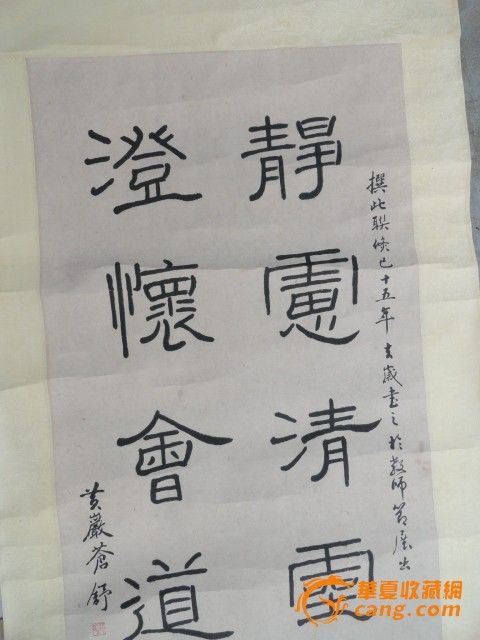 撰此聯倏已十五年去歲書之於教師節展出
靜慮清虛
澄懷會道
黃巖蒼舒
華夏收藏網
cang.com